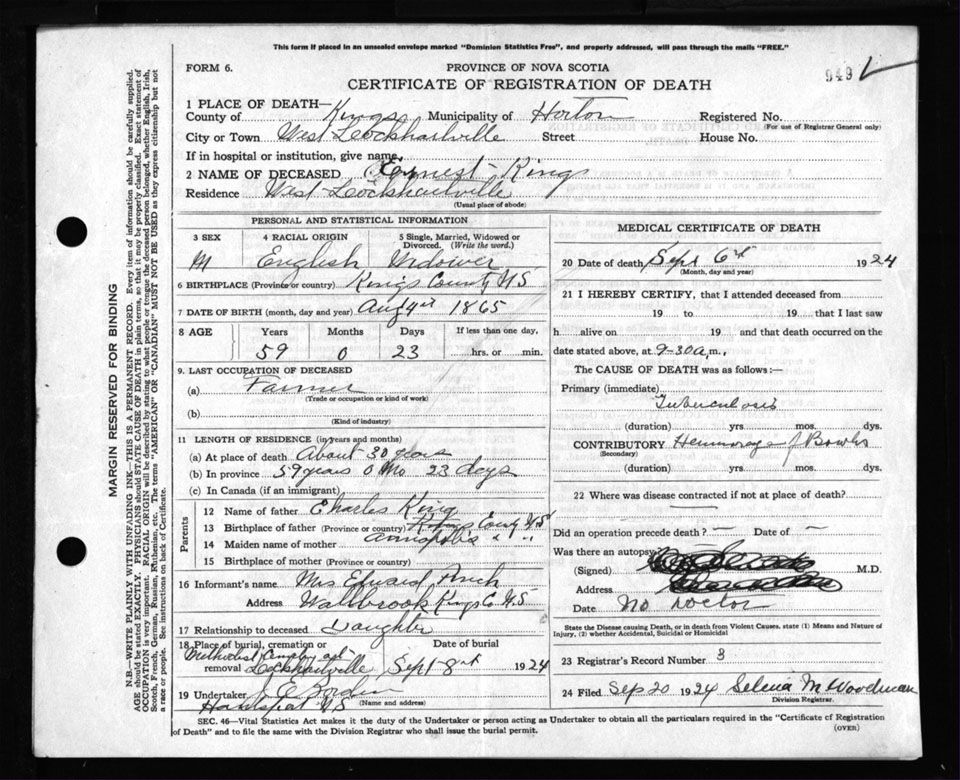 This form if placed in an unsealed envelope marked "Dominion Statistics Free", and properly addressed, will pass through the mails "FREE."
FORM 6.
PROVINCE OF NOVA SCOTIA
949
CERTIFICATE OF REGISTRATION OF DEATH
1 PLACE OF DEATH—
County of Kings Municipality of Horton Registered No.
(For use of Registrar General only)
City or Town West Lockhartville Street House No.
If in hospital or institution, give name
2 NAME OF DECEASED Ernest King
Residence West Lockhartville
(Usual place of abode)
PERSONAL AND STATISTICAL INFORMATION
3 SEX 4 RACIAL ORIGIN 5 Single, Married, Widowed or Divorced. (Write the word.)
M English Widower
6 BIRTHPLACE (Province or country) Kings County N S
7 DATE OF BIRTH (month, day and year) Aug 1865
8 AGE Years Months Days If less than one day,
59 0 23 hrs. or min.
9. LAST OCCUPATION OF DECEASED
(a) Farmer
(Trade or occupation or kind of work)
(b)
(Kind of industry)
11 LENGTH OF RESIDENCE (in years and months)
(a) At place of death About 30 years
(b) In province 59 years 0 Mo 23 days
(c) In Canada (if an immigrant)
Parents
12 Name of father Charles King
13 Birthplace of father (Province or country) Kings County N S
14 Maiden name of mother Annapolis " "
15 Birthplace of mother (Province or country)
16 Informant's name Mrs
Address Wallbrook Kings Co. N.S
17 Relationship to deceased Daughter
18 Place of burial, cremation or removal Date of burial
Methodist Lockhartville Sept 8 1924
19 Undertaker J E Borden
(Name and address)
Hantsport N S
MEDICAL CERTIFICATE OF DEATH
20 Date of death Sept 6 1924
(Month, day and year)
21 I HEREBY CERTIFY, that I attended deceased from
19 to 19 that I last saw
h alive on 19 and that death occurred on the
date stated above, at 9-30 a.m.,
The CAUSE OF DEATH was as follows:—
Primary (immediate)
Tuberculosis
(duration) yrs. mos. days.
CONTRIBUTORY Hemmorage of Bowls
(Secondary)
(duration) yrs. mos. days.
22 Where was disease contracted if not at place of death?
Did an operation precede death? — Date of —
Was there an autopsy?
(Signed) M.D.
Address
Date No Doctor
State the Disease causing Death, or in death from Violent Causes, state (1) Means and Nature of Injury, (2) whether Accidental, Suicidal or Homicidal
23 Registrar's Record Number 3
24 Filed Sep 20 1924 Selena M Woodman
Division Registrar.
SEC. 46—Vital Statistics Act makes it the duty of the Undertaker or person acting as Undertaker to obtain all the particulars required in the "Certificate of Registration
of Death" and to file the same with the Division Registrar who shall issue the burial permit. (OVER)
MARGIN RESERVED FOR BINDING
N.B.—WRITE PLAINLY WITH UNFADING INK—THIS IS A PERMANENT RECORD. Every item of information should be carefully supplied.
AGE should be stated EXACTLY. PHYSICIANS should STATE CAUSE OF DEATH in plain terms, so that it may be properly classified. Exact statement of
OCCUPATION is very important. RACIAL ORIGIN will be described by stating to what people or tongue the deceased person belonged, whether English, Irish,
Scotch, French, German, Russian, Ruthenian, etc. The terms "AMERICAN" OR "CANADIAN" MUST NOT BE USED as they express citizenship but not
a race or people. See instructions on back of Certificate.